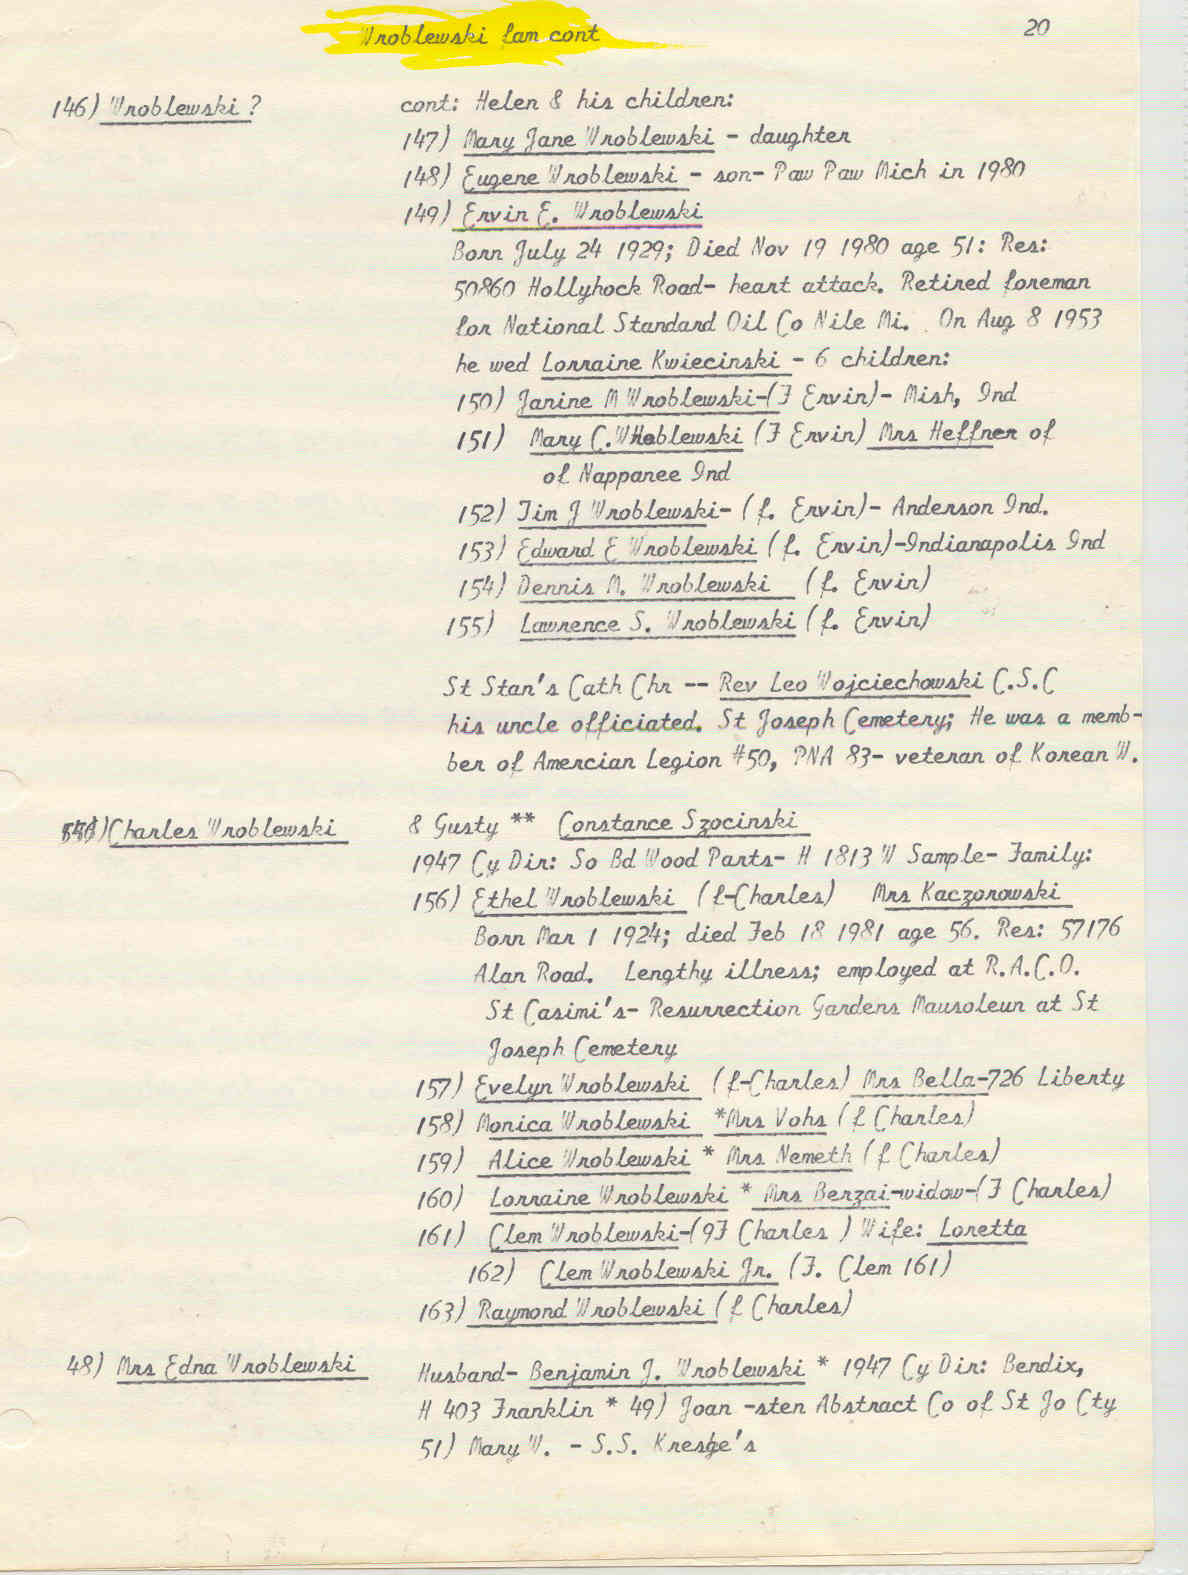 Wroblewski fam cont
20
146) Wroblewski ? cont: Helen & his children:
147) Mary Jane Wroblewski - daughter
148) Eugene Wroblewski - son- Paw Paw Mich in 1980
149) Ervin E. Wroblewski
Born July 24 1929; Died Nov 19 1980 age 51: Res:
50860 Hollyhock Road- heart attack. Retired foreman
for National Standard Oil Co Nile Mi. On Aug 8 1953
he wed Lorraine Kwiecinski - 6 children:
150) Janine M Wroblewski-(F Ervin)- Mish, Ind
151) Mary C. Wroblewski (F Ervin) Mrs Heffner of
of Nappanee Ind
152) Tim J Wroblewski- (f. Ervin)- Anderson Ind.
153) Edward E Wroblewski (f. Ervin)-Indianapolis Ind
154) Dennis M. Wroblewski (f. Ervin)
155) Lawrence S. Wroblewski (f. Ervin)
St Stan's Cath Chr -- Rev Leo Wojciechowski C.S.C
his uncle officiated. St Joseph Cemetery; He was a memb-
ber of Amercian Legion #50, PNA 83- veteran of Korean W.
Charles Wroblewski & Gusty ** Constance Szocinski
1947 Cy Dir: So Bd Wood Parts- H 1813 W Sample- Family:
156) Ethel Wroblewski (f-Charles) Mrs Kaczorowski
Born Mar 1 1924; died Feb 18 1981 age 56. Res: 57176
Alan Road. Lengthy illness; employed at R.A.C.O.
St Casimi's- Resurrection Gardens Mausoleun at St
Joseph Cemetery
157) Evelyn Wroblewski (f-Charles) Mrs Bella-726 Liberty
158) Monica Wroblewski *Mrs Vohs (f Charles)
159) Alice Wroblewski * Mrs Nemeth (f Charles)
160) Lorraine Wroblewski * Mrs Berzai-widow-(F Charles)
161) Clem Wroblewski-(9F Charles ) Wife: Loretta
162) Clem Wroblewski Jr. (F. Clem 161)
163) Raymond Wroblewski (f Charles)
48) Mrs Edna Wroblewski Husband- Benjamin J. Wroblewski * 1947 Cy Dir: Bendix,
H 403 Franklin * 49) Joan -sten Abstract Co of St Jo Cty
51) Mary W. - S.S. Kresge's